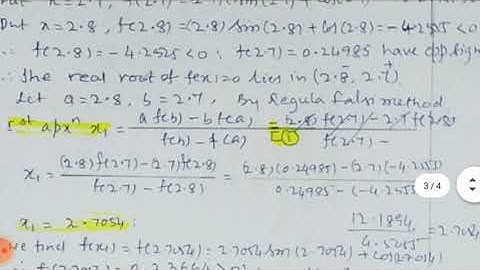 Put x=2.8, f(2.8) =(2.8) sin(2.8)+cos(2.8)=-4.2525 <0
∴ f(2.8)=-4.2525<0; f(2.7)=0.24985 have opp sign
∴ The real root of f(x)=0 lies in (2.8, 2.7).
Let a=2.8, b=2.7, By Regula falsi method
1st apxn x1 = af(b)-bf(a) / f(b)-f(a) = (2.8)f(2.7)-2.7f(2.8) / f(2.7)-
x1 = (2.8)f(2.7)-(2.7)f(2.8) / f(2.7)-f(2.8) = (2.8)(0.24985)-(2.7)(-4.2525) / 0.24985-(-4.2525
3/4
x1 = 2.7054; 12.1894 / 4.5055 = 2.705
we find f(x1)=f(2.7054)=2.7054 sin(2.7054)+cos(2.7054)